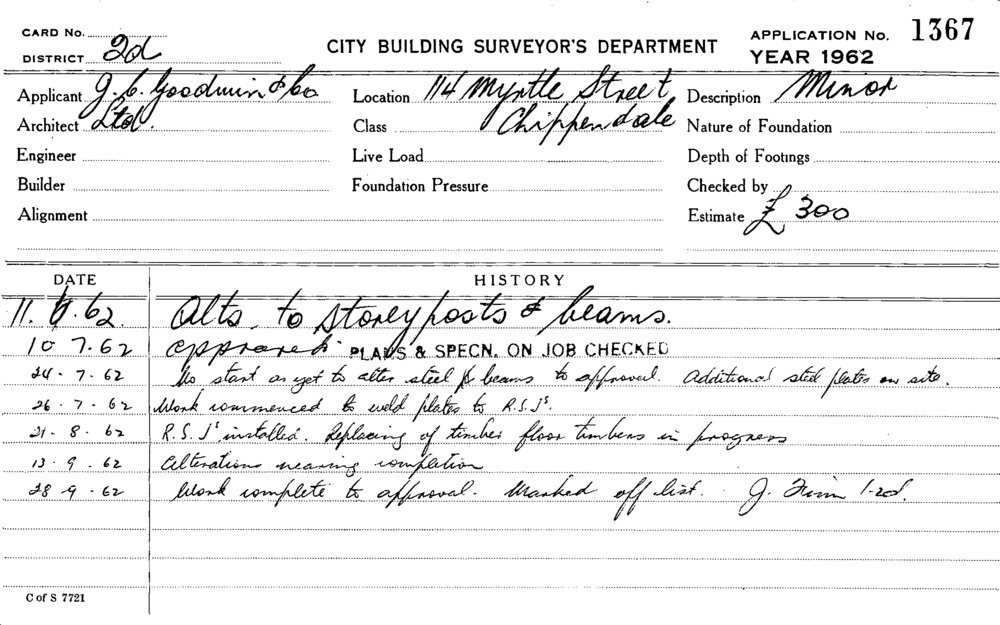 CARD No.
DISTRICT 2d
CITY BUILDING SURVEYOR'S DEPARTMENT
APPLICATION No. 1367
YEAR 1962
Applicant J. C. Goodwin & Co
Location 114 Myrtle Street
Description Minor
Architect Ltd.
Class Chippendale
Nature of Foundation
Engineer
Live Load
Depth of Footings
Builder
Foundation Pressure
Checked by
Alignment
Estimate £ 300
DATE HISTORY
11. 62. Alts. to Storeyposts & beams.
10 7.62 approved PLANS & SPECN. ON JOB CHECKED
24. 7. 62 No start as yet to alter steel beams to approval. Additional steel plates on site.
26. 7. 62 Work commenced to weld plates to R.S.Js.
21. 8. 62 R.S.Js installed. Replacing of timber floor timbers in progress
13. 9. 62 Alterations nearing completion
28 9. 62 Work complete to approval. Marked off list. J.
C of S 7721